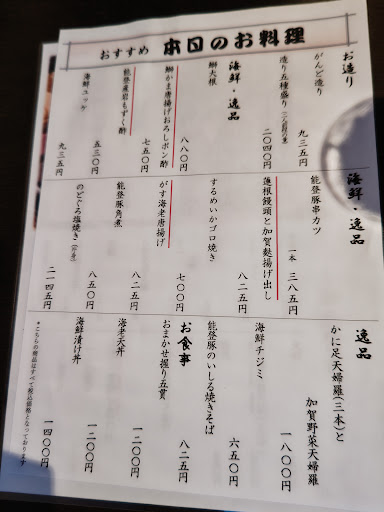 おすすめ 本日のお料理
お造り
がんど造り 九三五円
造り五種盛り(二〜三人前) 二〇四〇円
海鮮・逸品
鰤大根 八八〇円
鰤かま唐揚げおろしポン酢 七五〇円
能登産岩もずく酢 五三〇円
海鮮ユッケ 九三五円
海鮮・逸品
能登豚串カツ 一本 三八五円
蓮根饅頭と加賀麩揚げ出し 八二五円
するめいかゴロ焼き 七〇〇円
がす海老唐揚げ 八二五円
能登豚角煮 八五〇円
のどぐろ塩焼き 二一四五円
逸品
かに足天婦羅(三本)と
加賀野菜天婦羅 一八〇〇円
海鮮チヂミ 六五〇円
能登豚のいしる焼きそば 八二五円
お食事
おまかせ握り五貫 一二〇〇円
海老天丼 一二〇〇円
海鮮漬け丼 一四〇〇円
*こちらの商品はすべて税込価格となっております